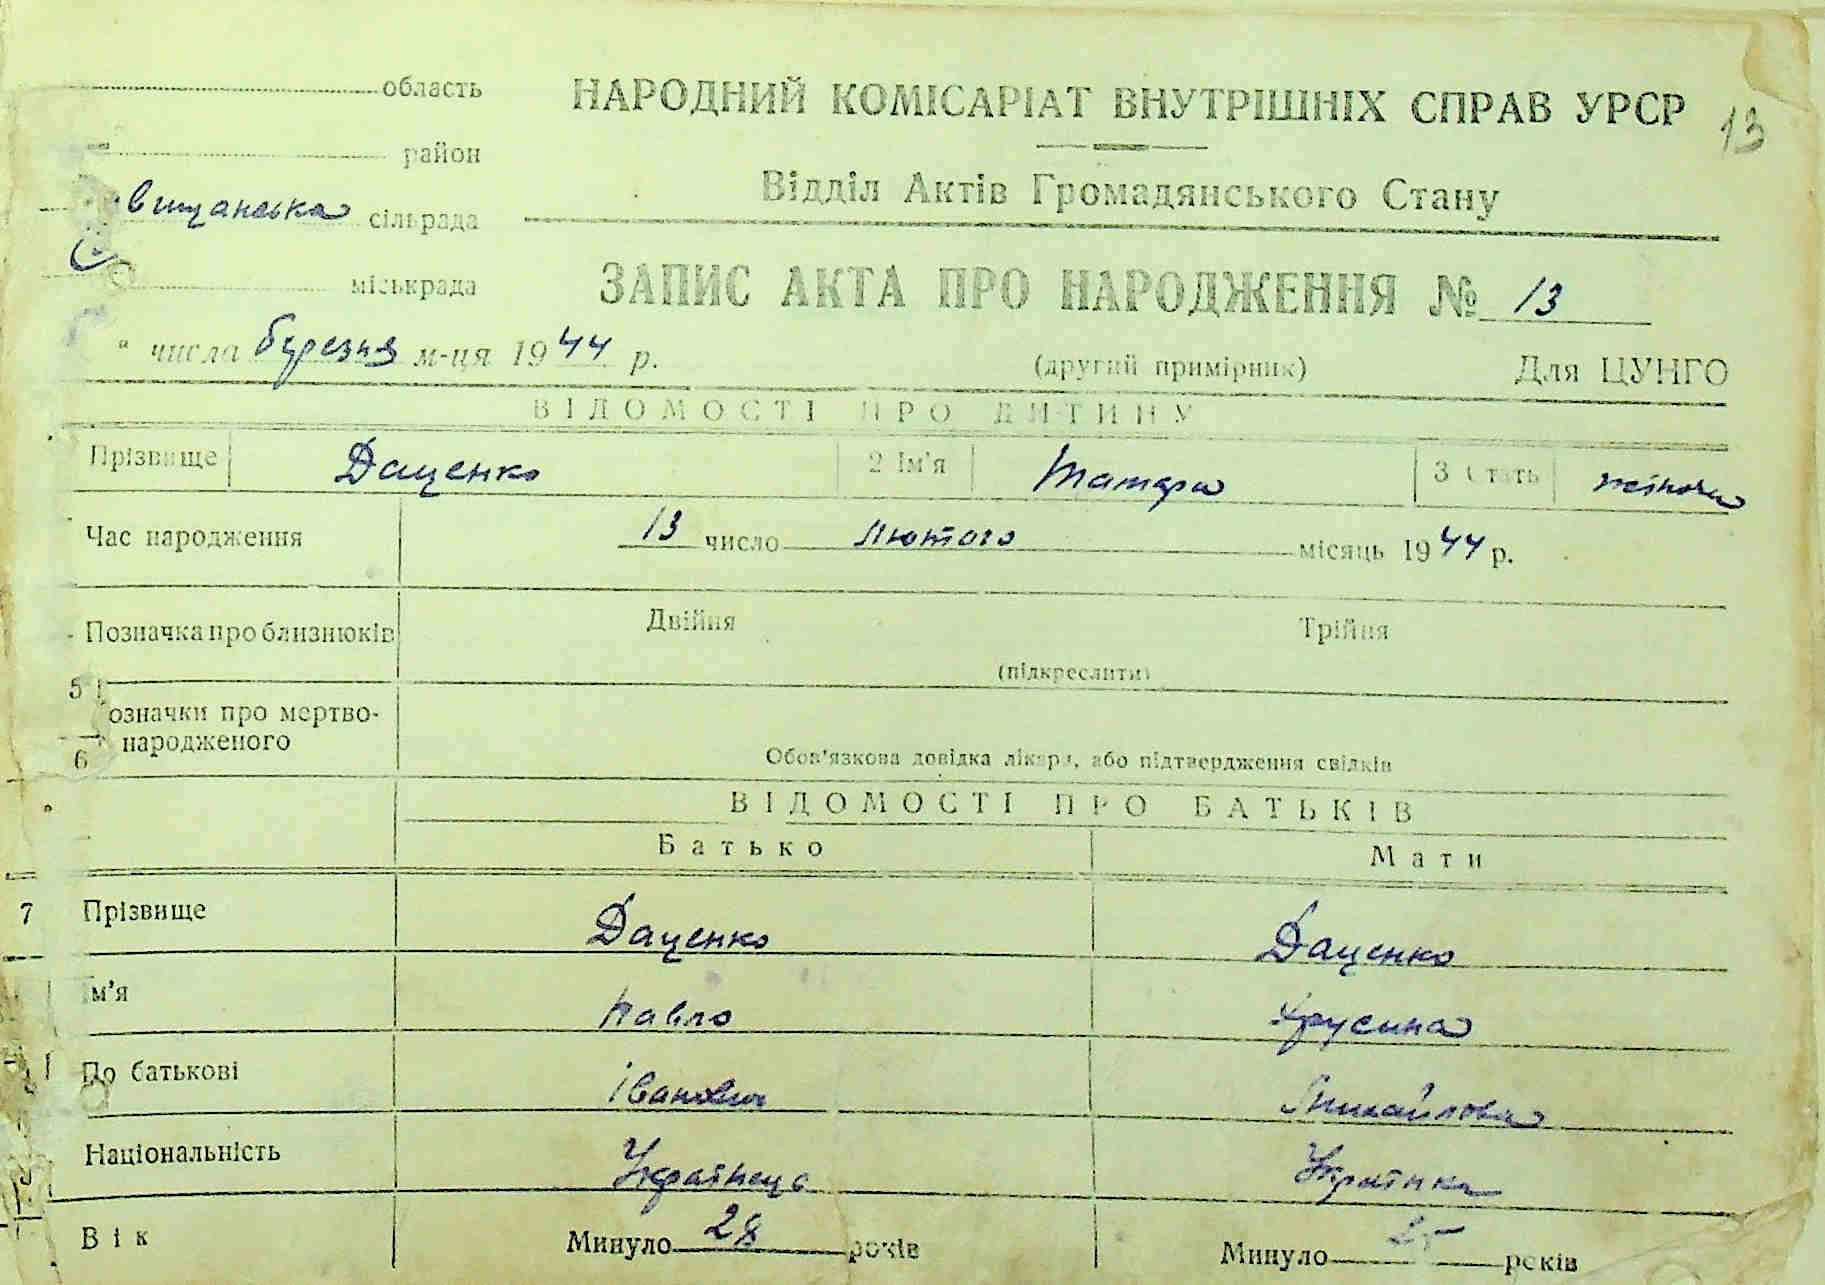 область
НАРОДНИЙ КОМІСАРІАТ ВНУТРІШНІХ СПРАВ УРСР
13
район
Відділ Актів Громадянського Стану
вищанська сільрада
міськрада
ЗАПИС АКТА ПРО НАРОДЖЕННЯ № 13
" числа березня м-ця 1944 р.
(другий примірник) Для ЦУНГО
ВІДОМОСТІ ПРО ДИТИНУ
Прізвище Даценко 2 Ім'я Тамара 3 Стать жіноча
Час народження 13 число лютого місяць 1944 р.
Позначка про близнюків Двійня Трійня
(підкреслити)
5
означки про мертво-
народженого
6 Обов'язкова довідка лікаря, або підтвердження свідків
ВІДОМОСТІ ПРО БАТЬКІВ
Батько Мати
7 Прізвище Даценко Даценко
Ім'я Павло Хрусина
По батькові Іванович Михайловна
Національність Українець Українка
Вік Минуло 28 років Минуло 25 років